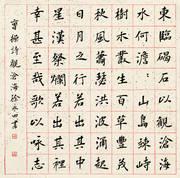 東臨碣石以觀滄海
水何澹:山島竦峙
樹木叢生百草豐茂
秋風蕭瑟洪波湧起
日月之行若出其中
星漢燦爛若出其裏
幸甚至哉歌以詠志
曹操詩觀滄海徐永